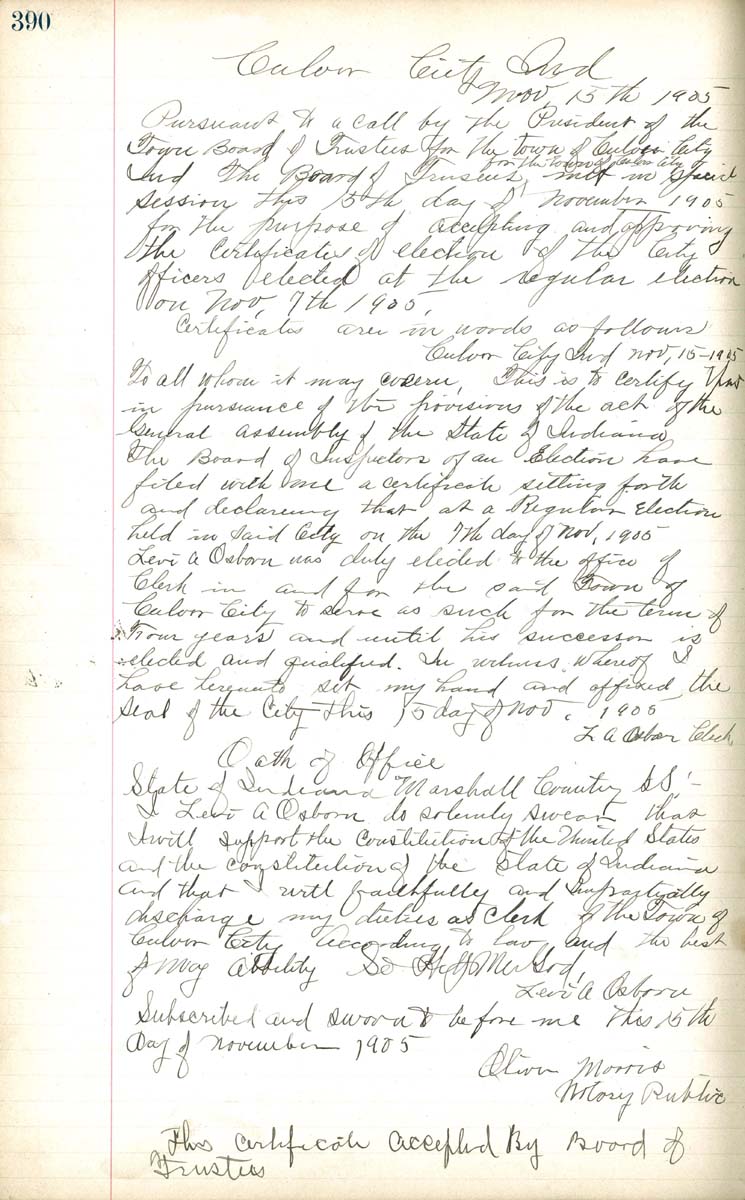 390
Culver City Ind
Nov, 15th 1905
Pursuant to a call by the President of the
Town Board of Trustees for the town of Culver City
for the town of Culver City
Ind The Board of Trusees met in special
session this 15th day of November 1905
for the purpose of accepting and approving
the certificates of election of the City
officers elected at the regular election
on Nov, 7th 1905,
Certificates are in words as follows
Culver City Ind nov, 15-1905
To all whom it may cocern, This is to certify that
in pursuance of the provisions of the act of the
General assembly of the State of Indiana
The Board of Inspectors of an Election have
filed with me a certificate setting forth
and declareing that at a Regular Election
held in said City on the 7th day of Nov, 1905
Levi A Osborn was duly elected to the office of
Clerk in and for the said Town of
Culver City to serve as such for the term of
Four years and until his successor is
elected and qualified. In witness whereof I
have hereunto set my hand and affixed the
Seal of the City this 15 day of Nov. 1905
L A Osborn Clerk
Oath of Office
State of Indiana Marshall County SS,-
I Levi A Osborn do solemly swear that
I will support the constitution of the United States
and the constitution of the State of Indiana
and that I will faithfully and Impartially
discharge my duties as Clerk of the Town of
Culver City According to law and the best
of may ability So Help Me God,
Levi A Osborn
Subscribed and sworn to before me this 15th
Day of November 1905
Oliver Morris
Notary Public
This certificate accepted By Board of
Trustees